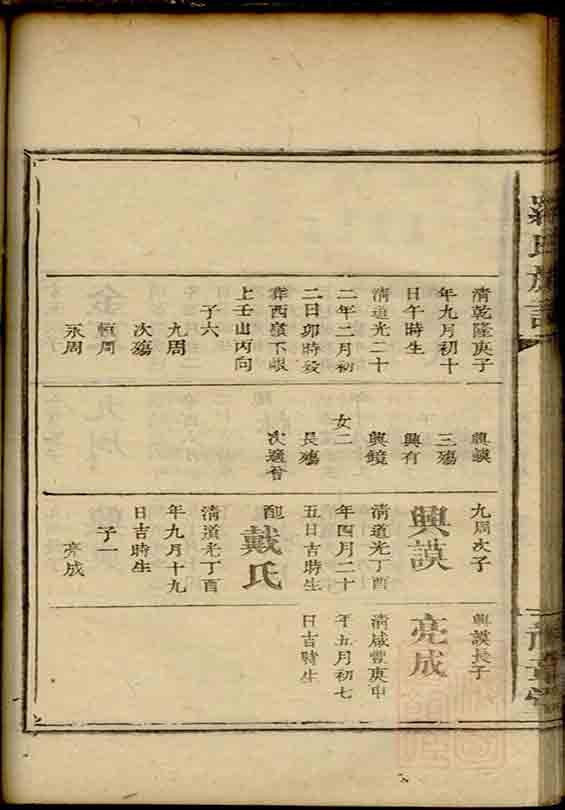 羅氏族譜
豫章堂
清乾隆庚子
年九月初十
日午時生
清道光二十
二年二月初
二日卯時歿
葬西嶺下嘏
上壬山丙向
子六
九周
次殤
恒周
永周
興謨
三殤
興有
興鏡
女二
長殤
次適曾
九周次子
興謨
清道光丁酉
年四月二十
五日吉時生
配
戴氏
清道光丁酉
年九月十九
日吉時生
子一
亮成
興謨長子
亮成
清咸豐庚申
年五月初七
日吉時生